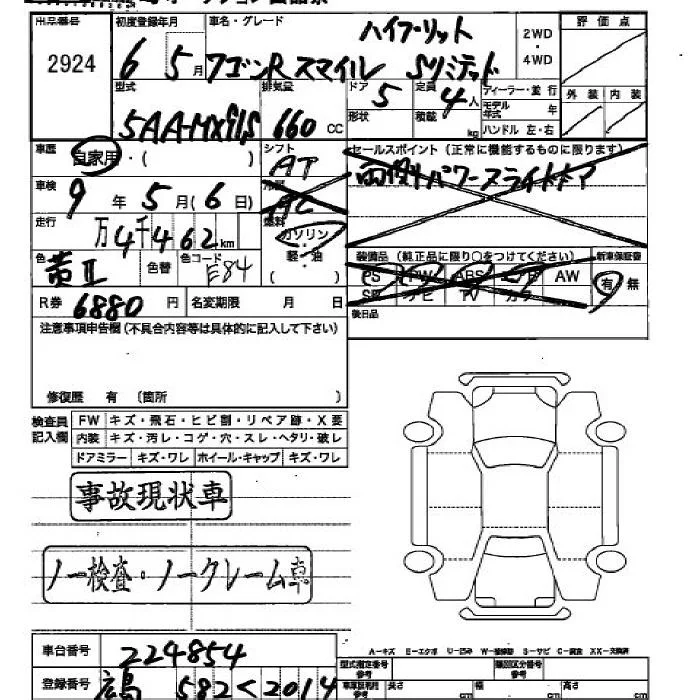 出品番号 初度登録年月 車名・グレード ハイブリット 2WD・4WD 評価点
2924 6年 5月 ワゴンR スマイル Sリミテッド
型式 排気量 ドア 5 定員 4人 ディーラー・並行 外装 内装
形状 積載 kg モデル年式 年
5AA-MX91S 660 CC ハンドル 左・右
車歴 自家用・( ) シフト AT セールスポイント (正常に機能するものに限ります)
両側パワースライドドア
車検 9年 5月(6日) 冷房 AC
走行 万4千462km 燃料 ガソリン・軽・油 ( )
色 黄Ⅱ 色替 色コード E84
装備品 (純正品に限り○をつけてください) 新車保証書
PS PW ABS エアB AW 有・無
SR ナビ TV カワ
R券 6880円 名変期限 月 日 後日品
注意事項申告欄(不具合内容等は具体的に記入して下さい)
修復歴 有 (箇所 )
検査員記入欄 FW キズ・飛石・ヒビ割・リペア跡・X要
内装 キズ・汚レ・コゲ・穴・スレ・ヘタリ・破レ
ドアミラー キズ・ワレ ホイール・キャップ キズ・ワレ
事故現状車
ノー検査・ノークレーム車
A-キズ E-エクボ U-凹み W-補修跡 S-サビ C-腐食 XX-交換済
車台番号 224854 型式指定番号 参考 類別区分番号 参考
登録番号 広島 582く2014 長さ cm 幅 cm 高さ cm